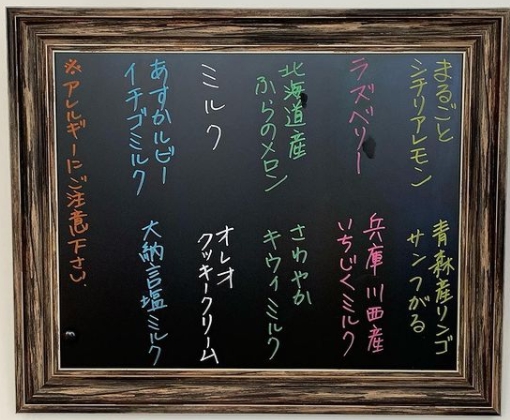 まるごと
シチリアレモン
ラズベリー
北海道産
ふらのメロン
ミルク
あすかルビー
イチゴミルク
青森産リンゴ
サンつがる
兵庫川西産
いちじくミルク
さわやか
キウイミルク
オレオ
クッキークリーム
大納言塩ミルク
※アレルギーにご注意下さい.